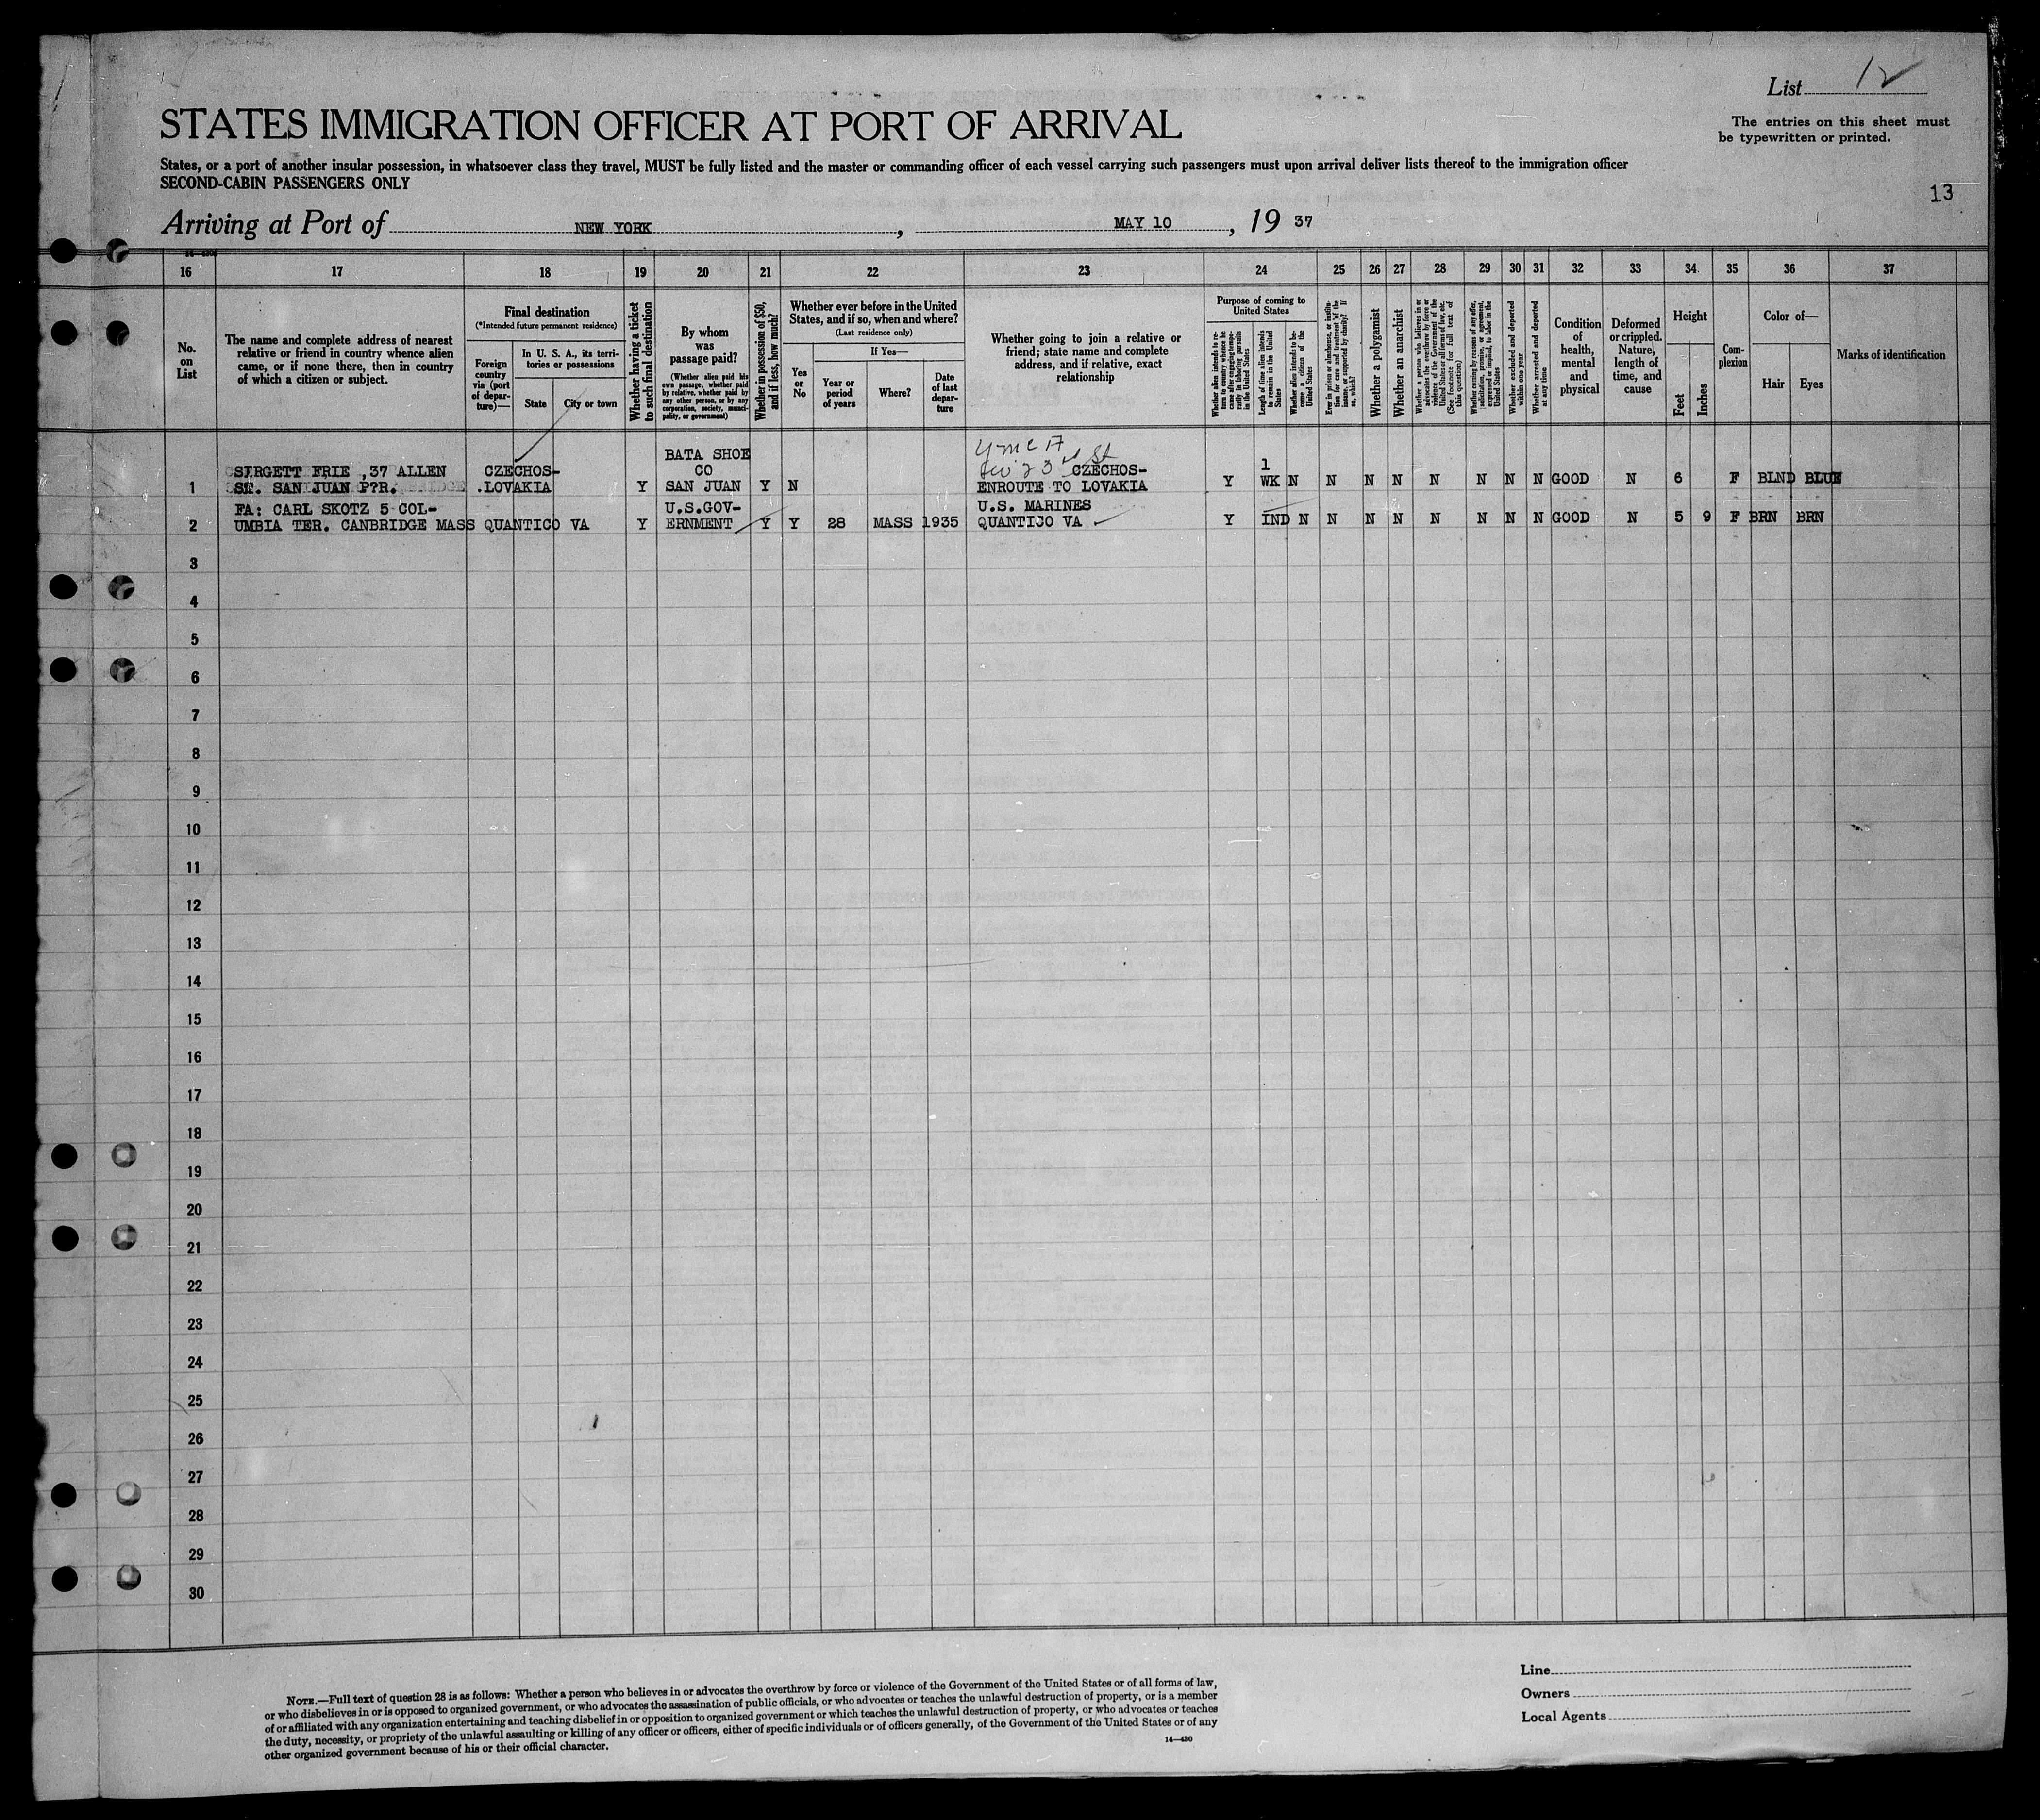 List 12
STATES IMMIGRATION OFFICER AT PORT OF ARRIVAL
The entries on this sheet must
be typewritten or printed.
States, or a port of another insular possession, in whatsoever class they travel, MUST be fully listed and the master or commanding officer of each vessel carrying such passengers must upon arrival deliver lists thereof to the immigration officer
SECOND-CABIN PASSENGERS ONLY
13
Arriving at Port of NEW YORK, MAY 10, 19 37
16 17 18 19 20 21 22 23 24 25 26 27 28 29 30 31 32 33 34 35 36 37
No.
on
List
The name and complete address of nearest
relative or friend in country whence alien
came, or if none there, then in country
of which a citizen or subject.
Final destination
(*Intended future permanent residence)
Foreign
country
via (port
of depar-
ture)—
In U. S. A., its terri-
tories or possessions
State
City or town
Whether having a ticket
to such final destination
By whom
was
passage paid?
(Whether alien paid his
own passage, whether paid
by relative, whether paid by
any other person, or by any
corporation, society, munici-
pality, or government)
Whether in possession of $50,
and if less, how much?
Whether ever before in the United
States, and if so, when and where?
(Last residence only)
Yes
or
No
If Yes—
Year or
period
of years
Where?
Date
of last
depar-
ture
Whether going to join a relative or
friend; state name and complete
address, and if relative, exact
relationship
Purpose of coming to
United States
Whether alien intends to re-
turn to country whence he
came after engaging tempo-
rarily in laboring pursuits
in the United States
Length of time alien intends
to remain in the United
States
Whether alien intends to be-
come a citizen of the
United States
Ever in prison or almshouse, or institu-
tion for care and treatment of the
insane, or supported by charity? If
so, which?
Whether a polygamist
Whether an anarchist
Whether a person who believes in or
advocates the overthrow by force or
violence of the Government of the
United States or all forms of law, etc.
(See footnote for full text of
this question)
Whether coming by reason of any offer,
solicitation, promise, or agreement,
expressed or implied, to labor in the
United States
Whether excluded and deported
within one year
Whether arrested and deported
at any time
Condition
of
health,
mental
and
physical
Deformed
or crippled.
Nature,
length of
time, and
cause
Height
Feet
Inches
Com-
plexion
Color of—
Hair
Eyes
Marks of identification
BATA SHOE
SIRGETT FRIE ,37 ALLEN CZECHOS- CO 23rd St CZECHOS- 1
1 ST. SAN JUAN P?R. .LOVAKIA Y SAN JUAN Y N ENROUTE TO LOVAKIA Y WK N N N N N N N N GOOD N 6 F BLND BLUE
FA: CARL SKOTZ 5 COL- U.S.GOV- U.S. MARINES
2 UMBIA TER. CANBRIDGE MASS QUANTICO VA Y ERNMENT Y Y 28 MASS 1935 QUANTIJO VA Y IND N N N N N N N N GOOD N 5 9 F BRN BRN
3
4
5
6
7
8
9
10
11
12
13
14
15
16
17
18
19
20
21
22
23
24
25
26
27
28
29
30
NOTE.—Full text of question 28 is as follows: Whether a person who believes in or advocates the overthrow by force or violence of the Government of the United States or of all forms of law,
or who disbelieves in or is opposed to organized government, or who advocates the assassination of public officials, or who advocates or teaches the unlawful destruction of property, or is a member
of or affiliated with any organization entertaining and teaching disbelief in or opposition to organized government or which teaches the unlawful destruction of property, or who advocates or teaches
the duty, necessity, or propriety of the unlawful assaulting or killing of any officer or officers, either of specific individuals or of officers generally, of the Government of the United States or of any
other organized government because of his or their official character.
14—430
Line
Owners
Local Agents